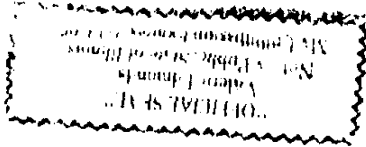 "OFFICIAL SEAL"
Valerie Edmonds
Notary Public, State of Illinois
My Commission Expires